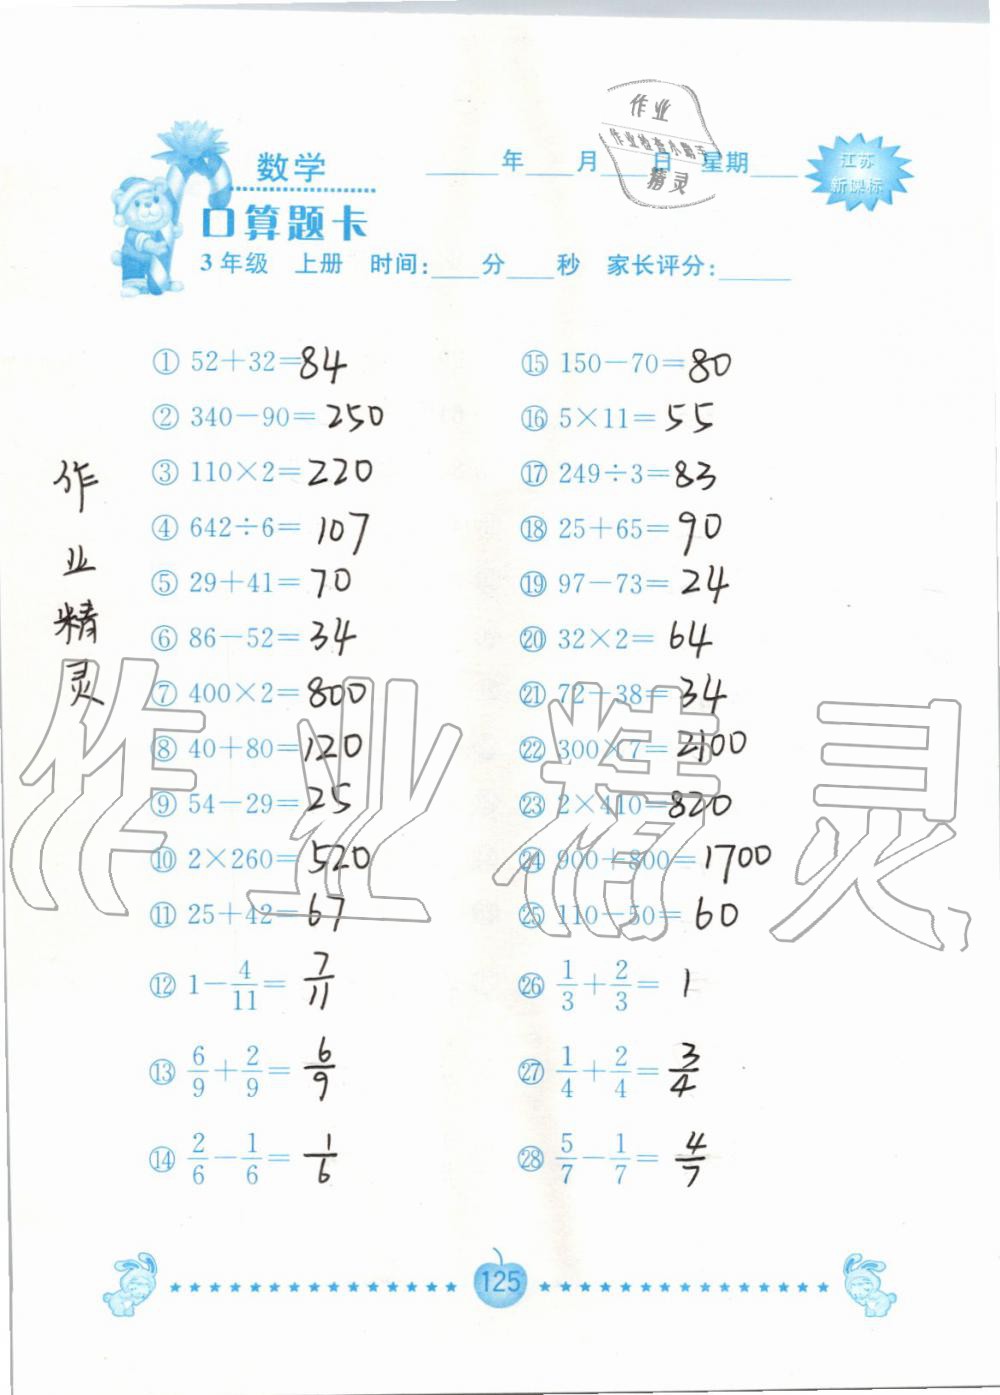 作业
作业检查小助手
精灵
数学
口算题卡
____年____月____日 星期____
江苏
新课标
3年级 上册 时间:____分____秒 家长评分:____
① 52+32=84
② 340-90=250
③ 110×2=220
④ 642÷6=107
⑤ 29+41=70
⑥ 86-52=34
⑦ 400×2=800
⑧ 40+80=120
⑨ 54-29=25
⑩ 2×260=520
⑪ 25+42=67
⑫ 1-4/11=7/11
⑬ 6/9+2/9=6/9
⑭ 2/6-1/6=1/6
⑮ 150-70=80
⑯ 5×11=55
⑰ 249÷3=83
⑱ 25+65=90
⑲ 97-73=24
⑳ 32×2=64
㉑ 72-38=34
㉒ 300×7=2100
㉓ 2×410=820
㉔ 900+800=1700
㉕ 110-50=60
㉖ 1/3+2/3=1
㉗ 1/4+2/4=3/4
㉘ 5/7-1/7=4/7
作业精灵
作业精灵
125